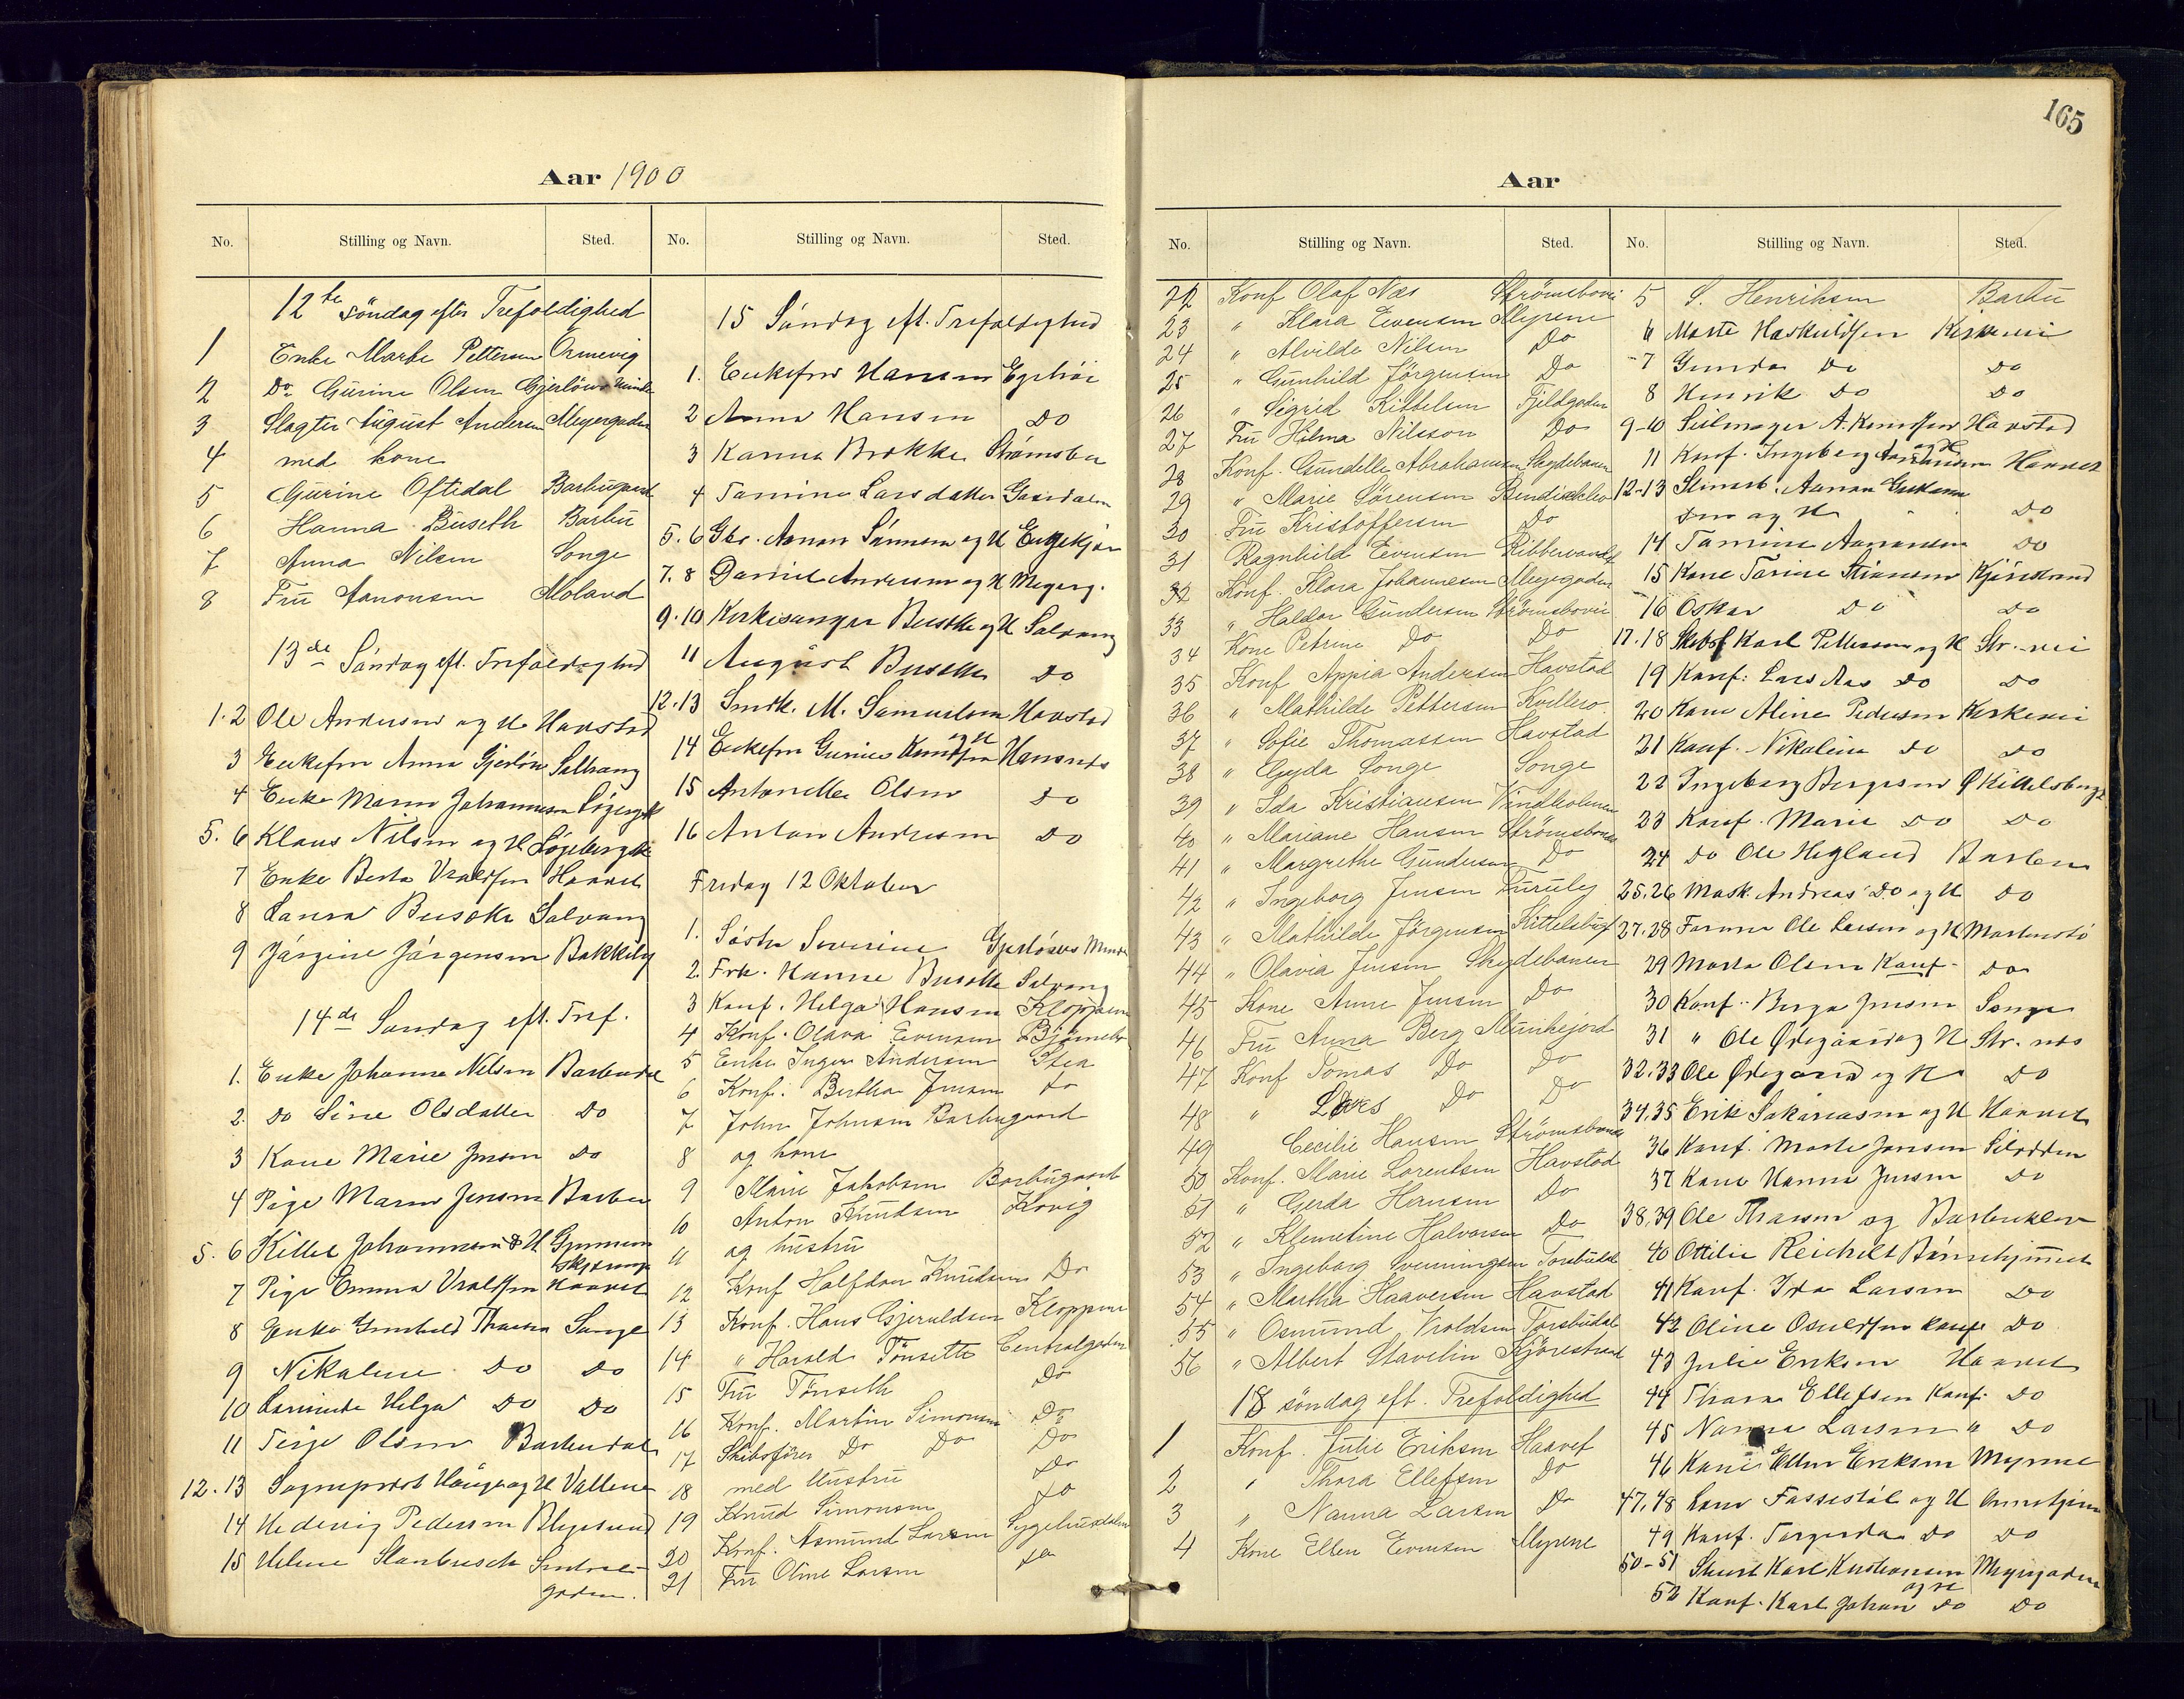 165
Aar 1900
No. Stilling og Navn. Sted. No. Stilling og Navn. Sted.
12te Söndag efter Trefoldighed
1 Enke Marte Pettersen Ormevig
2 Do Gurine Olsen Gjerløws Minde
3 Slagter August Andersen Meyergaden
4 med kone
5 Gurine Oftedal Barbugaard
6 Hanna Buseth Barbu
7 Anna Nilsen Songe
8 Fru Aanonsen Moland
13de Söndag eft. Trefoldighed
1.2 Ole Andersen og H Havstad
3 Enkefru Anna Gjerløw Solvang
4 Enke Maren Johannesen
5. 6 Klaus Nilsen og H
7 Enke Berta Vraldsen Haavet
8 Laura Buseth Solvang
9 Jörgine Jörgensen Bakkely
14de Söndag eft. Tref.
1. Enke Johanne Nilsen Barbudal
2. Do Sine Olsdatter Do
3 Kone Marie Jensen Do
4 Pige Maren Jensen Barbu
5. 6 Kittel Johannesen & H
7 Pige Emma Vraldsen Haavet
8 Enke Gunhild Songe
9 Nikaline Do Do
10 Helga Do Do
11 Terje Olsen Barbudal
12.13 Sogneprest Hauge og H Vallene
14 Hedevig Pedersen
15 Helene Stanbusch Sentral-
gaden.
15 Söndag eft. Trefoldighed
1. Enkefru Hansen
2 Anna Hansen Do
3 Karina Brekke Strömsbu
4 Tomine Larsdatter
5.6 Gbr. Aanon Sörensen og H Engekjær
7. 8 Daniel Andersen og H Meyerg.
9.10 Kirkesanger Buseth og H Solvang
11 August Buseth Do
12.13 Smdk. M. Samuelsen Havstad
og H
14 Enkefru Gurine Knudsen
15 Antonette Olsen Do
16 Anton Andresen Do
Fredag 12 Oktober
1. Søster Severine Gjerløws Minde
2. Frk. Hanne Buseth Solvang
3 Konf. Helga Hansen Kloppene
4 Konf. Olava Evensen
5 Enke Inger Andersen Stea
6 Konf. Bertha Jensen Do
7 John Johnsen Barbugaard
8 og kone
9 Marie Jakobsen Barbugaard
10 Anton Knudsen Kovig
11 og hustru
12 Konf Halfdan Knudsen Do
13 Konf. Hans Gjeruldsen Kloppene
14 " Harald Tönseth Centralgaden
15 Fru Tönseth Do
16 Konf. Martin Simonsen Do
17 Skibsfører Do Do Do
18 med Hustru Do
19 Knud Simonsen Do
20 Konf. Asmund Larsen Sygehusdalen
21 Fru Oline Larsen Do
Aar
No. Stilling og Navn. Sted. No. Stilling og Navn. Sted.
22 Konf Olaf Næs Strömsbovei
23 " Klara Evensen Myrene
24 " Alvilde Nilsen Do
25 " Gunhild Jörgensen Do
26 " Sigrid Kittelsen Fjeldgaden
27 Fru Hilma Nilsson Do
28 Konf. Gundelle Abrahamsen Skydebanen
29 " Marie Sörensen Bendiksklev
30 Fru Kristoffersen Do
31 Ragnhild Evensen
32 Konf. Klara Johannesen Meyergaden
33 " Haldor Gundersen Strömsbovei
34 Kone Petrine Do Do
35 Konf Appia Andersen Havstad
36 " Mathilde Pettersen
37 " Sofie Thomassen Havstad
38 " Gyda Songe Songe
39 " Ida Kristiansen Vindholmen
40 " Mariane Hansen Strömsbonæs
41 " Margrethe Gundersen Do
42 " Ingeborg Jensen Furuly
43 " Mathilde Jörgensen Kittelsbugt
44 " Olavia Jensen Skydebanen
45 Kone Anne Jensen Do
46 Fru Anna Berg Munkejord
47 Konf Tomas Do Do
48 " Lars Do Do
49 Cecilie Hansen Strömsbonæs
50 Konf. Marie Lorentsen Havstad
51 " Gerda Hansen Do
52 " Klemetine Halvorsen Do
53 " Ingeborg Svenningsen Torsbudal
54 " Martha Haaversen Havstad
55 " Osmund Vroldsen Torsbudal
56 " Albert Stavelin Kjörestrand
18 söndag eft. Trefoldighed
1 Konf. Julie Eriksen Haavet
2 " Thora Ellefsen Do
3 " Nanna Larsen Do
4 Kone Ellen Evensen Myrene
5 S. Henriksen Barbu
6 Marte Haskuldsen Kirkevei
7 Gunda Do Do
8 Henrik Do Do
9-10 Seilmager A. Knudsen Havstad
og H
11 Konf. Ingeborg Aanonsen Haavet
12-13 Aanon
og H Do
14 Tomine Aanonsen Do
15 Kone Torine Stiansen Kjörestrand
16 Oskar Do Do
17.18 Skibsf Karl Pettersen og H Str.-vei
19 Konf. Lars Aas Do Do
20 Kone Aline Pedersen Kirkevei
21 Konf. Nikoline Do Do
22 Ingeborg Bergesen Ø Kittelsbugt
23 Konf. Marie Do Do
24 Do Ole Hegland Barbu
25.26 Mask. Andreas Do og H Do
27.28 Former Ole Larsen og H
29 Marta Olsen Konf. Do
30 Konf. Berga Jensen Songe
31 " Ole Ødegaard og H Str. næs
32.33 Ole Ødegaard og H Do
34.35 Erik Sakariasen og H Haavet
36 Konf. Marte Jensen
37 Kone Hanna Jensen Do
38,39 Ole Thorsen og Barbuklev
40 Ottilie Reichelt Børnehjemmet
41 Konf. Ida Larsen Do
42 Oline Osuldsen Konf Do
43 Julie Eriksen Haavet
44 Thora Ellefsen Konf. Do
45 Nanna Larsen " Do
46 Kone Ellen Eriksen Myrene
47,48 Fassestøl og H
49 Konf. Torgerda Do Do
50-51 Karl Kristiansen Meyergaden
og H
52 Konf. Karl Johan Do Do